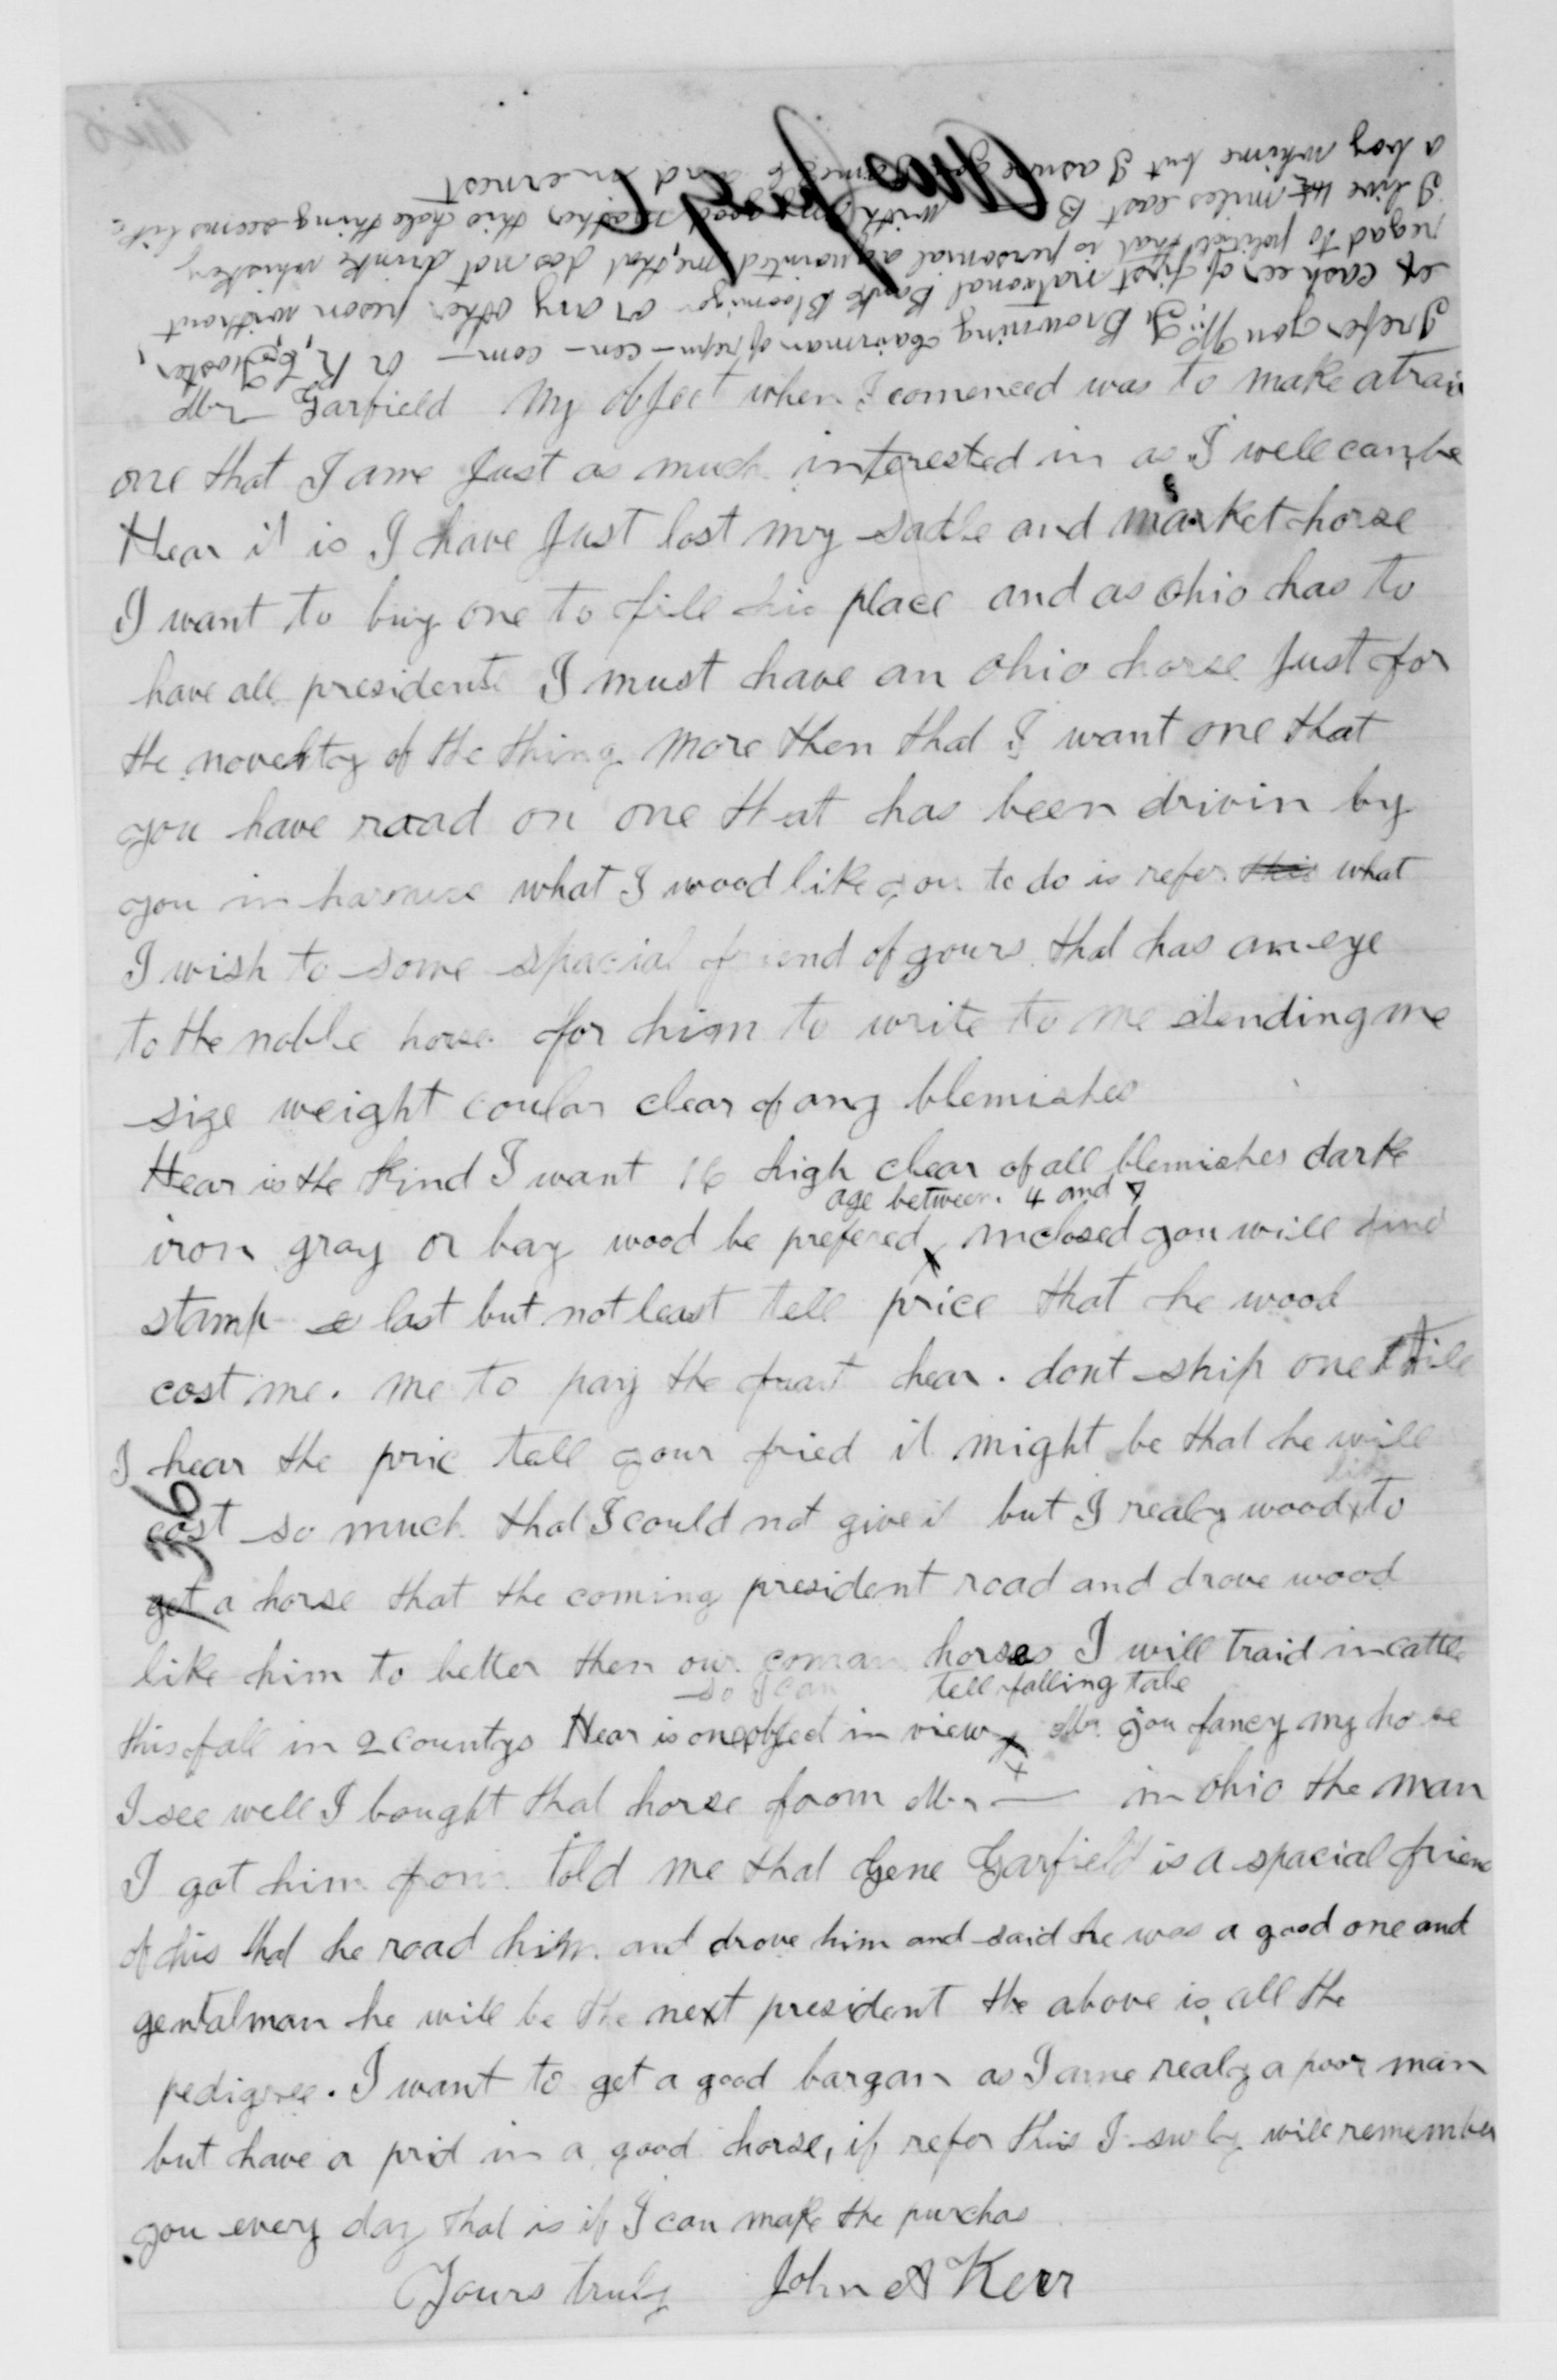 Mr Garfield My object when I comenced was to make a traid
one that I ame Just as much interested in as I well can be
Hear it is I have Just lost my sadle and market horse
I want to buy one to fill his place and as Ohio has to
have all presidents I must have an Ohio horse Just for
the novelty of the thing More then that I want one that
you have road on one that has been drivin by
you in harniss what I wood like you to do is refer this what
I wish to some spacial friend of yours that has an eye
to the noble horse for him to write to me sending me
size weight coular clear of any blemishes
Hear is the kind I want 16 high clear of all blemishes darke
age between 4 and 7
iron gray or bay wood be prefered x inclosed you will find
stamp last but not least tell price that he wood
cost me. me to pay the frait hear. dont ship one till
I hear the pric tell your fried it might be that he will
like
cost so much that I could not give it but I realy wood x to
36
get a horse that the coming president road and drove wood
like him to better then our coman horses I will traid in cattle
so I can tell falling tale
this fall in 2 countys Hear is one object in view x Mr you fancy my horse
I see well I bought that horse from Mr — in Ohio the man
I got him from told me that Gene Garfield is a spacial friend
of his that he road him and drove him and said he was a good one and
gentalman he will be the next president the above is all the
pedigree. I want to get a good bargan as I ame realy a poor man
but have a prid in a good horse, if refer this I surly will remember
you every day that is if I can make the purchas
Yours truly John A Kerr
I refer you Browning Chairman of repu - cen - com - or R, Foster,
ex casheer of first national Bank Bloomington or any other person without
regad to politics that is personial aquainted me, that does not drinke whiskey
I live miles east B with my good mother this hole thing seems like
a boy whime but I asure you I ame and in ernest